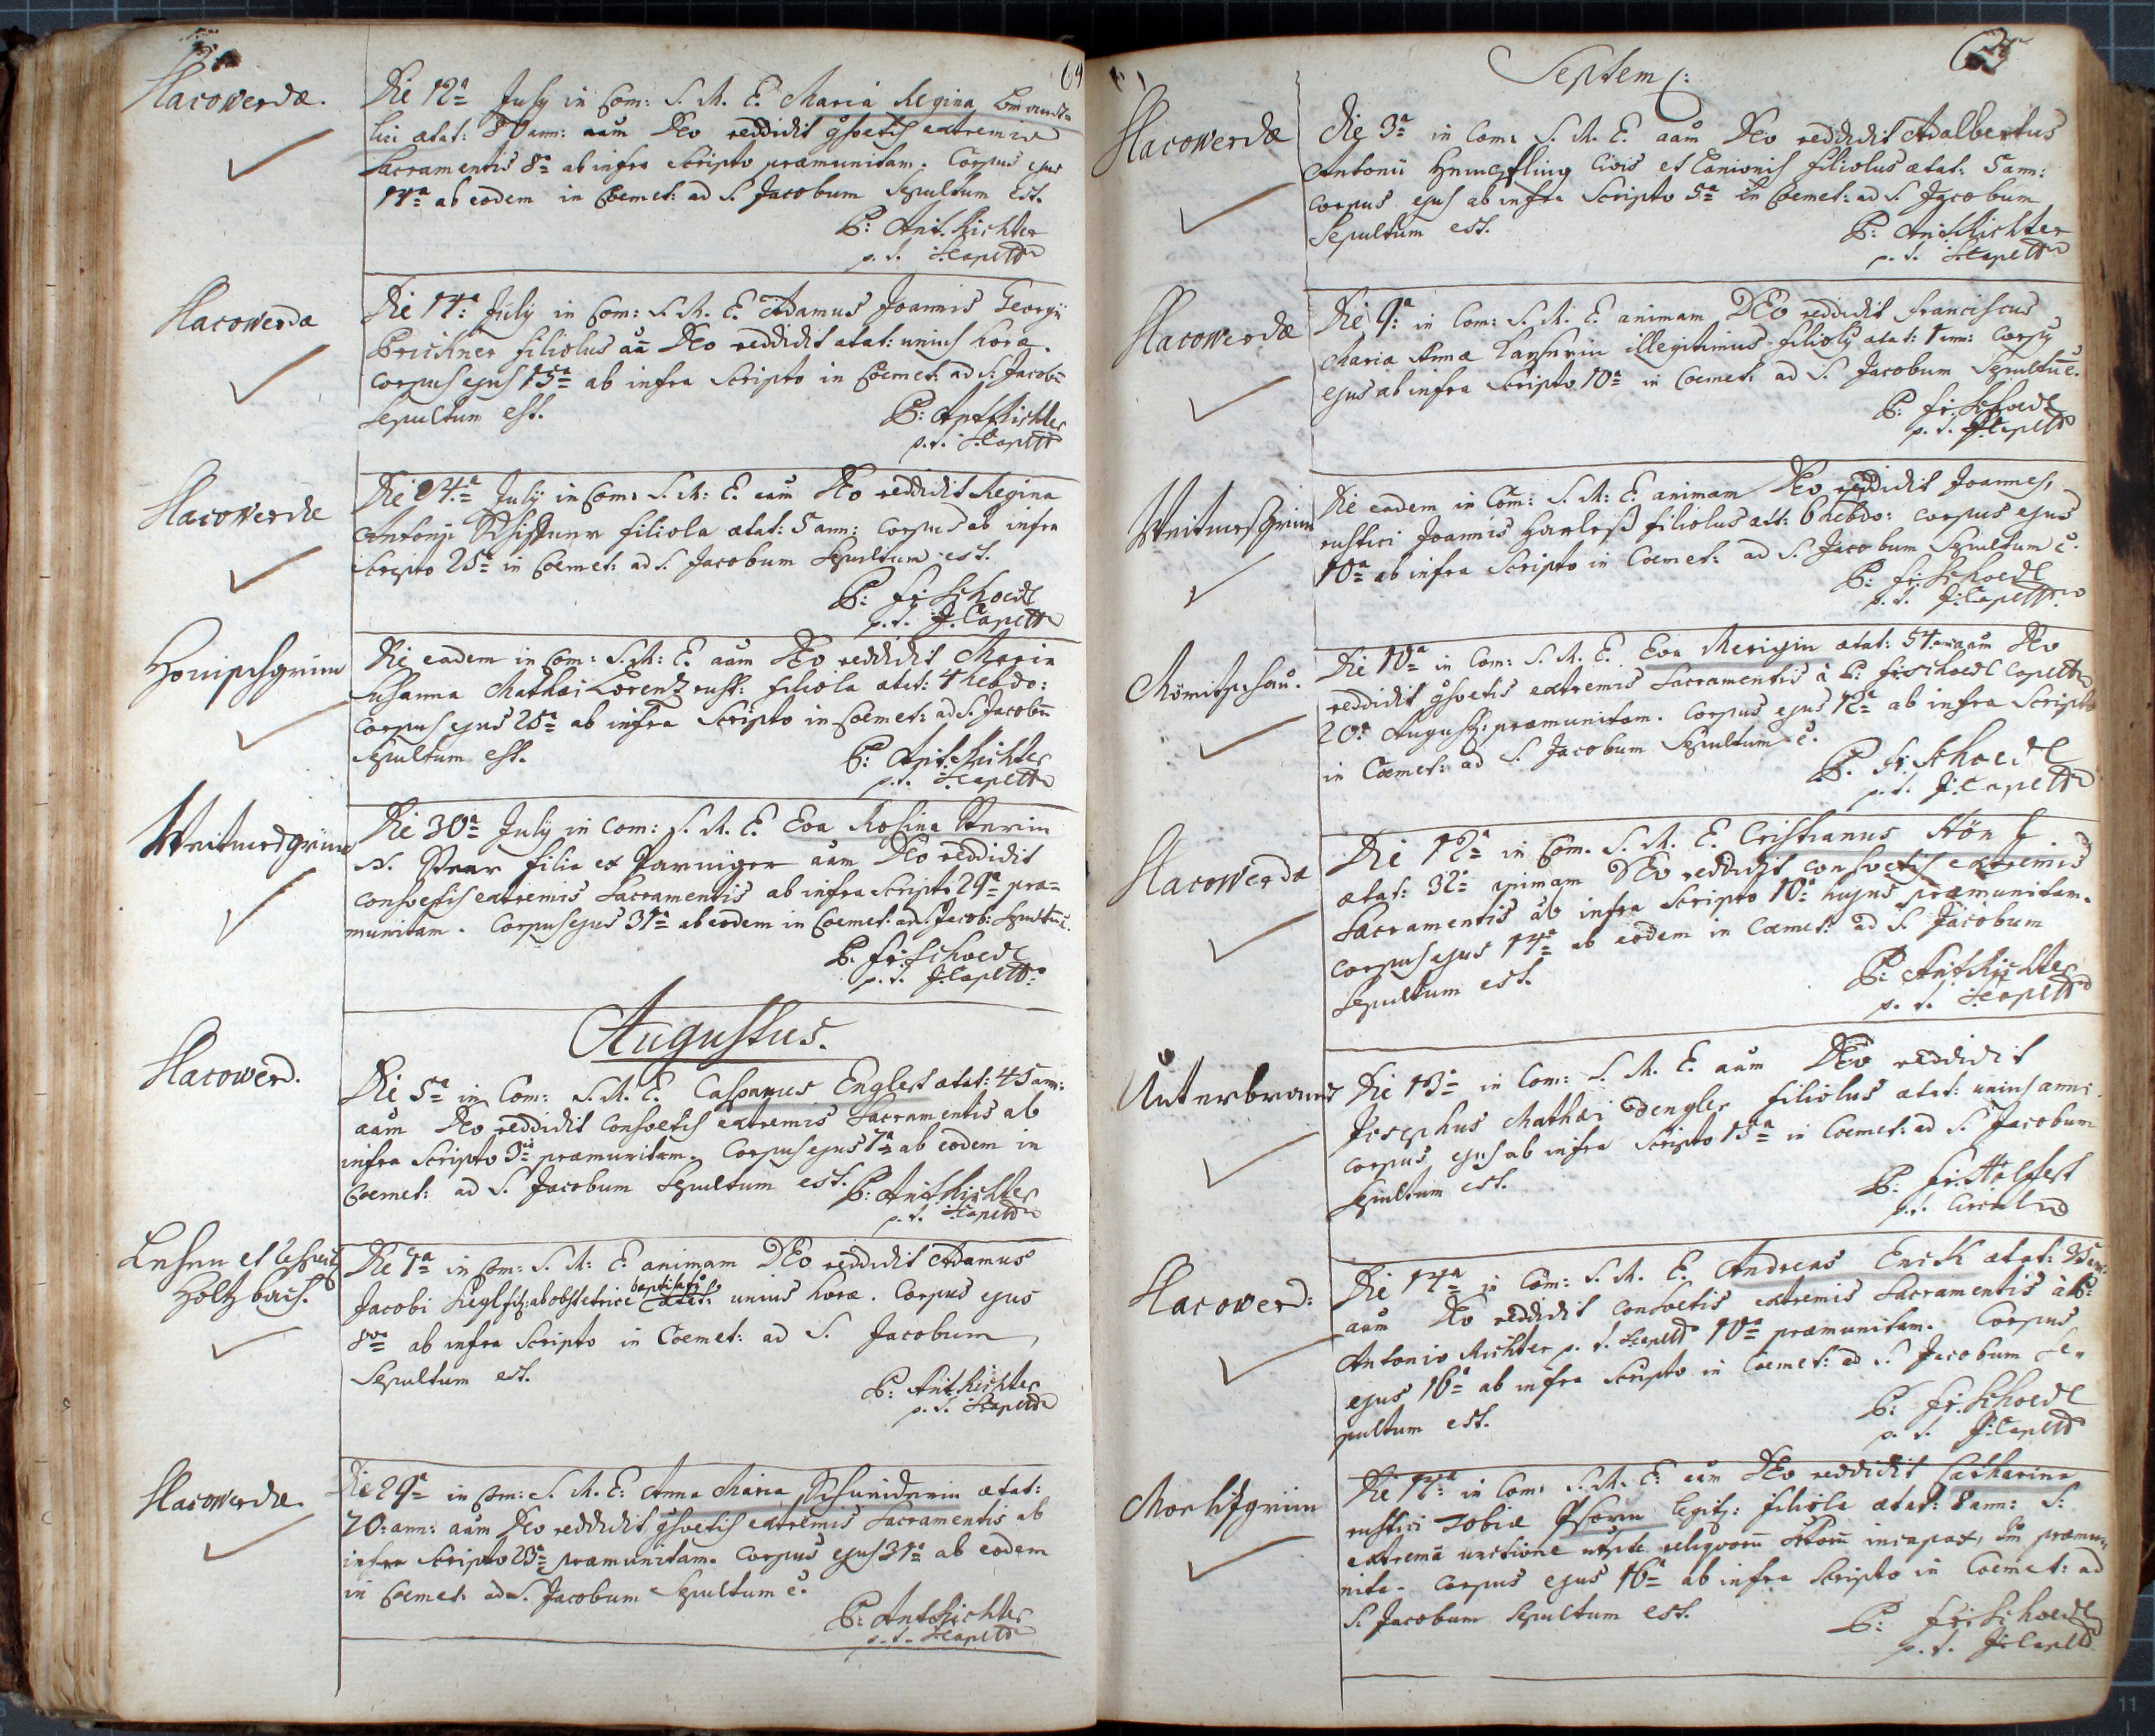 64
Slacowerdæ.
Die 12ª July in Com: S. M. E. Maria Regina
ætat: 80 ann: aam Deo reddidit gsvetis extremis
Sacramentis 8ª ab infra Scripto præmunitam. Corpus ejus
14ª ab eodem in Coemet: ad S. Jacobum Sepultum Est.
P: Ant: Richter
p. t. Capell
Slacowerdæ
Die 14ª July in Com: S. M. E. Adamus Joannis Georgii
Prickner filiolus aã Deo reddidit ætat: unius hora.
Corpus ejus 15ª ab infra Scripto in Coemet: ad S. Jacobũ
Sepultum est.
P: Ant Richter
p. t. Capell
Slacowerdæ
Die 24ª July in Com: S. M: E. aam Deo reddidit Regina
Antonij filiola ætat: 5 ann: Corpus ab infra
Scripto 25ª in Coemet: ad S. Jacobum Sepultum est.
P: fr: Schoedl
p. t. J. Capell
Honipsgrün
Die eadem in Com: S. M: E. aam Deo reddidit Maria
Susanna Mathæi Lorentz rust: filiola ætat: 4 hebdo:
Corpus ejus 25ª ab infra Scripto in Coemet: ad S. Jacobũ
Sepultum est.
P: Ant: Richter
p. t. Capell
Weitmesgrün
Die 30ª July in Com: S. M. E. Eva Rosina
N. filia ex aam Deo reddidit
consvetis extremis Sacramentis ab infra Scripto 29ª præ=
munitam. Corpus ejus 31ª ab eodem in Coemet: ad S. Jacob: Sepultũ ẽ.
P. fr: Schoedl
p. t. J: Capell:
Augustus.
Slacowerd.
Die 5ª in Com: S. M. E. Casparus Englert ætat: 45 ann:
aam Deo reddidit Consvetis extremis Sacramentis ab
infra Scripto 3ª præmunitam. Corpus ejus 7ª ab eodem in
Coemet: ad S. Jacobum Sepultum est. P: Ant Richter
p. t. Capell
Lessen et
Holtzbach.
Die 7ª in Com: S. M: E. animam DEo reddidit Adamus
Jacobi ab obstetrice baptisatus ætat: unius horæ. Corpus ejus
8ª ab infra Scripto in Coemet: ad S. Jacobum
Sepultum est.
P: Ant: Richter
p. t. Capell
Slacowerdæ.
Die 29ª in Com: S. M. E: Anna Maria Schneiderin ætat:
70: ann: aam Deo reddidit gsvetis extremis Sacramentis ab
infra Scripto 23ª præmunitam. Corpus ejus 31ª ab eodem
in Coemet: ad S. Jacobum Sepultum ẽ.
P: Ant Richter
p. t. Capell
Septem:
65
Slacowerdæ
Die 3ª in Com: S. M. E. aam Deo reddidit Adalbertus
Antonii Civis et Lanionis filiolus ætat: 5 ann:
Corpus ejus ab infra Scripto 5ª in Coemet: ad S. Jacobum
Sepultum est.
P: Ant Richter
p. t. Capell
Slacowerdæ
Die 9ª in Com: S. M. E. animam DEo reddidit franciscus
Mariæ Annæ illegitimus filiolus ætat: 1 ann: Corpus
ejus ab infra Scripto 10ª in Coemet: ad S. Jacobum Sepultũ ẽ.
P: fr: Schoedl
p. t. J: Capell
Weitmesgrün
Die eadem in Com: S. M: E. animam Deo reddidit Joannes,
rustici Joannis Harless filiolus æt: 6 hebdo: Corpus ejus
10ª ab infra Scripto in Coemet: ad S. Jacobum Sepultum ẽ.
P: fr: Schoedl
p. t. J: Capell
Römitschau.
Die 10ª in Com: S. M. E. Eva ætat: 54 ann aam Deo
reddidit gsvetis extremis Sacramentis à P: fr: Schoedl Capell
20ª Augusti: præmunitam. Corpus ejus 12ª ab infra Scripto
in Coemet: ad S. Jacobum Sepultum ẽ.
P. fr. Schoedl
p. t. J: Capell
Slacowerdæ
Die 12ª in Com. S. M. E. Cristianus
ætat: 32ª animam DEo reddidit consvetis extremis
Sacramentis ab infra Scripto 10ª hujus præmunitam.
Corpus ejus 14ª ab eodem in Coemet: ad S. Jacobum
Sepultum est.
P: Ant Richter
p. t. Capell
Unterbrand
Die 13ª in Com: S. M. E. aam DEo reddidit
Josephus Mathæi Dengler filiolus ætat: unius anni
Corpus ejus ab infra Scripto 15ª in Coemet: ad S. Jacobum
Sepultum est.
P: fr:
p. t.
Slacowerd:
Die 14ª in Com: S. M. E. Andreas Enick ætat: 35 ann:
aam Deo reddidit Consvetis extremis Sacramentis à P:
Antonio Richter p. t. Capell 10ª præmunitam. Corpus
ejus 16ª ab infra Scripto in Coemet: ad S. Jacobum Se=
pultum est.
P: fr: Schoedl
p. t. J: Capell
Mortisgrün
Die 14ª in Com: S. M. E: aam Deo reddidit Catharina
rustici Tobiæ legit: filiola ætat: 8 ann: S:
extrema unctione utpote reliquorum incapax, præmu=
nita. Corpus ejus 16ª ab infra Scripto in Coemet: ad
S. Jacobum Sepultum est.
P: fr: Schoedl
p. t. J: Capell